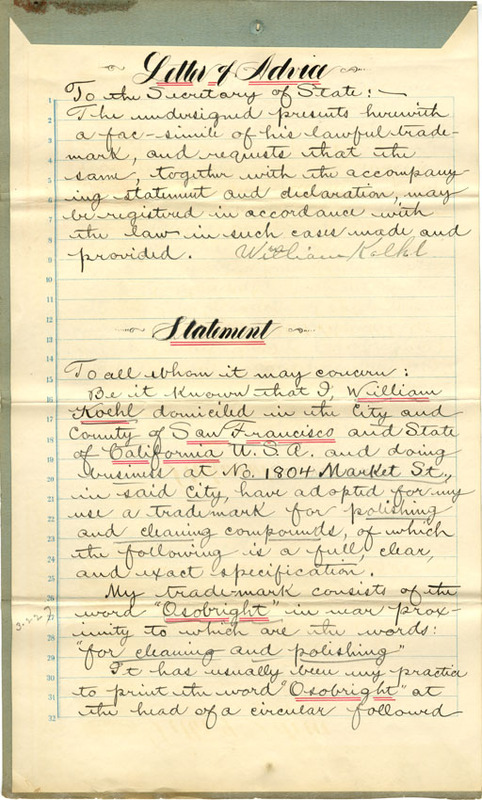 Letter of Advice
To the Secretary of State: —
The undersigned presents herewith
a fac-simile of his lawful trade-
mark, and requests that the
same, together with the accompany
ing statement and declaration, may
be registered in accordance with
the law in such cases made and
provided. William Koehl
Statement
To all whom it may concern:
Be it Known that I, William
Koehl domiciled in the City and
County of San Francisco and State
of California U.S.A. and doing
business at No. 1804 Market St.,
in said City, have adopted for my
use a trademark for polishing
and cleaning compounds, of which
the following is a full, clear,
and exact specification.
My trade-mark consists of the
word "Osobright" in near prox-
imity to which are the words:
"for cleaning and polishing"
It has usually been my practice
to print the word "Osobright" at
the head of a circular followed
1
2
3
4
5
6
7
8
9
10
11
12
13
14
15
16
17
18
19
20
21
22
23
24
25
26
27
28
29
30
31
32
3227